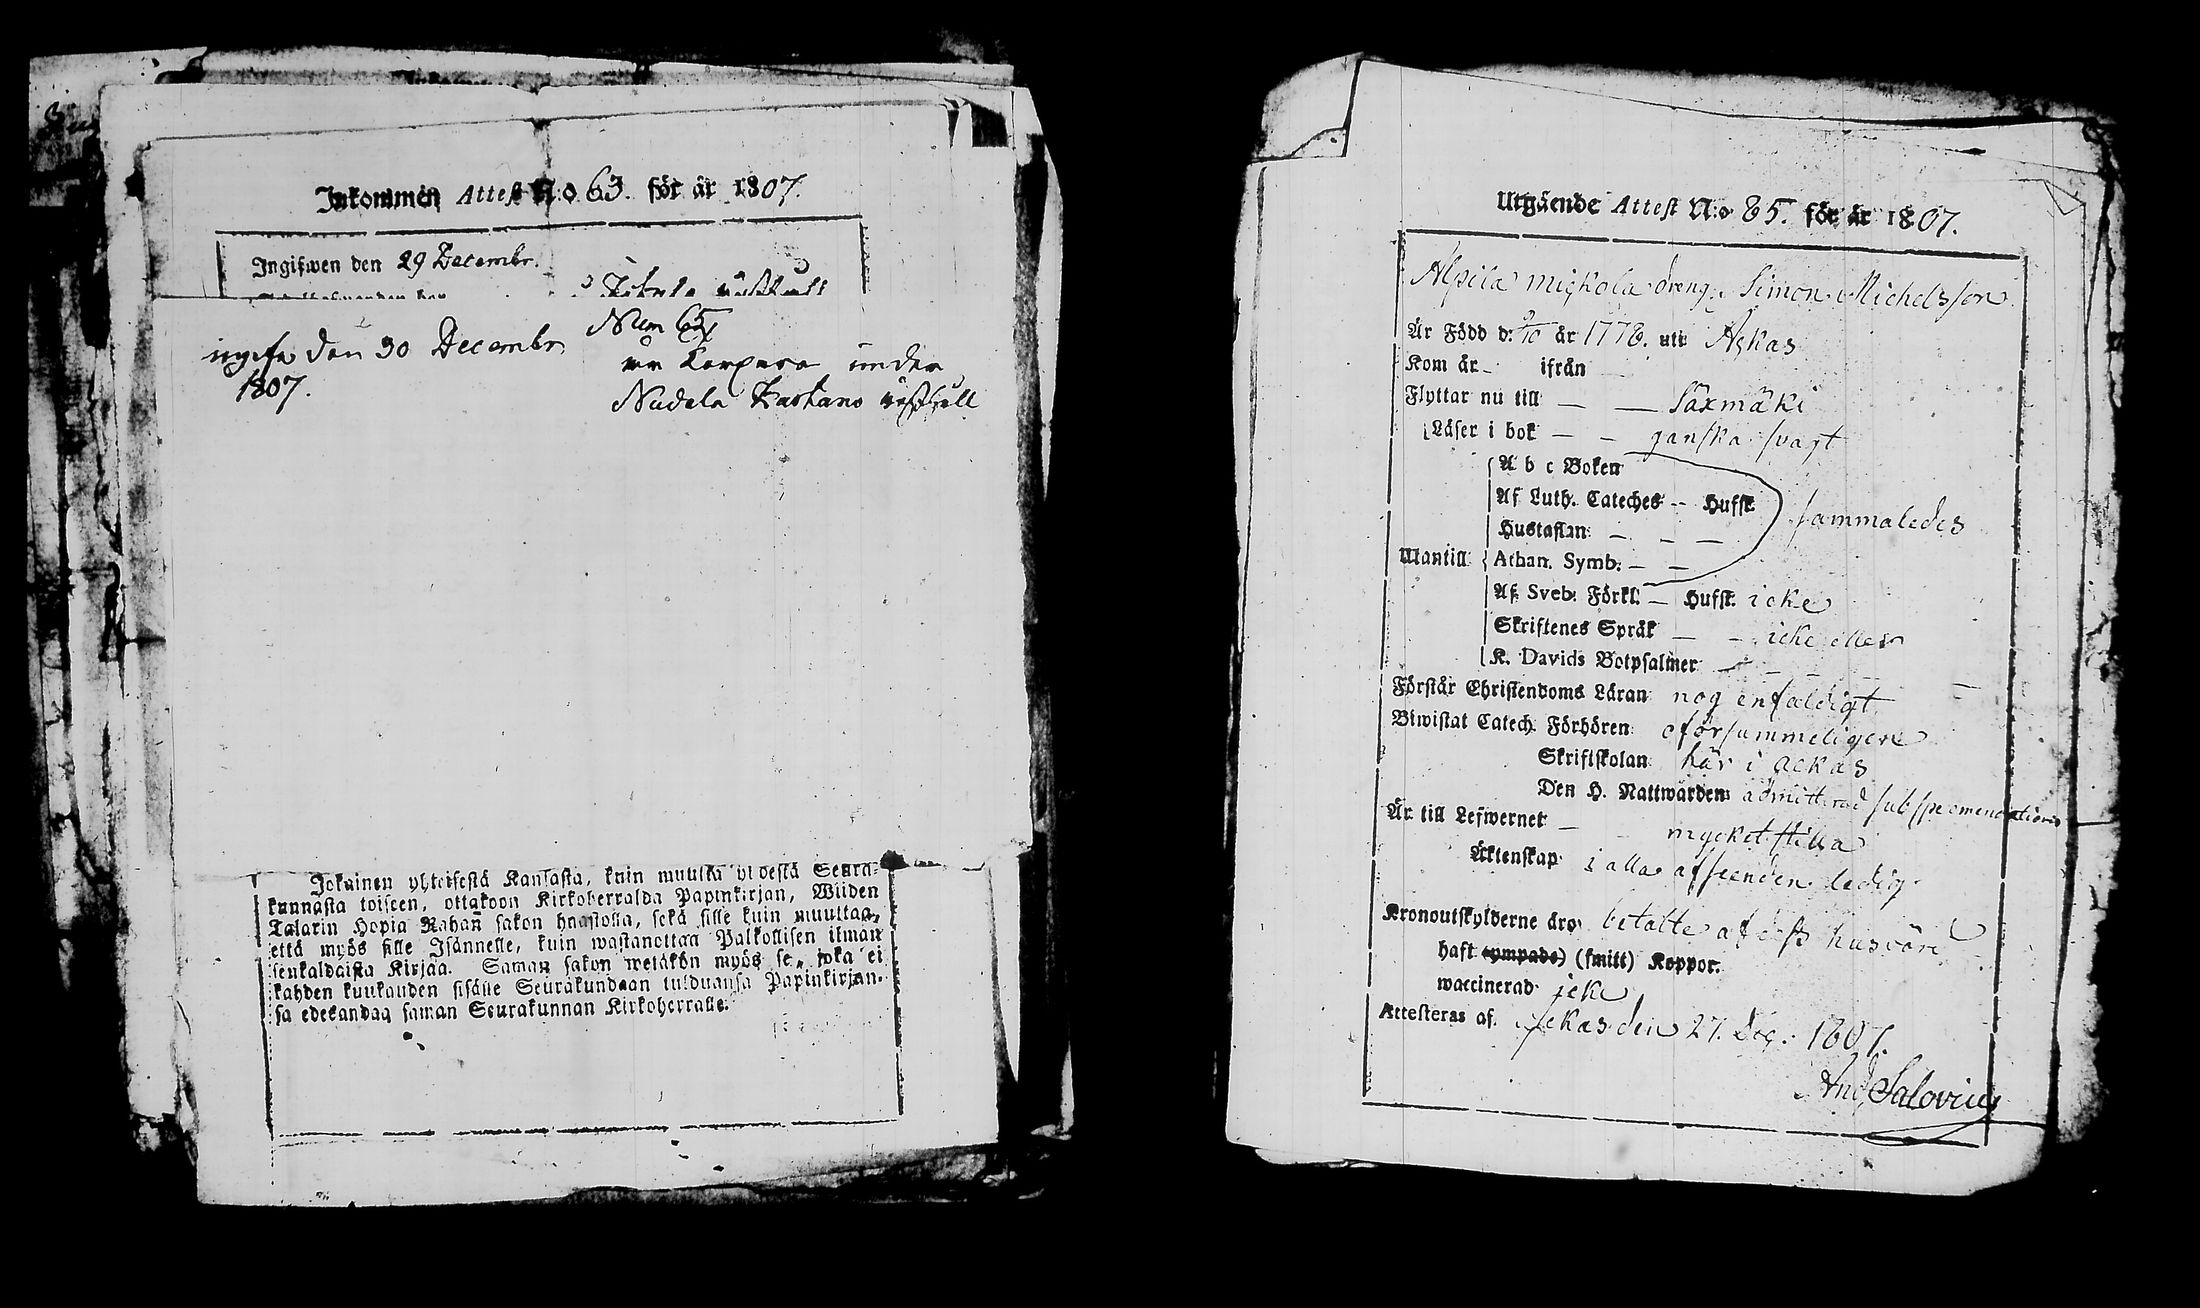 Inkommen Attest N:o 63. för år 1807.
Ingifwen den 29 Decembr.
Num 65
ingifn den 30 Decembr
1807.
under
Jokainen yhteisestä Kansasta, kuin muutta yhdestä Seura-
kunnasta toiseen, ottakoon Kirkoherralda Papinkirjan, Wiiden
Talarin Hopia Rahan sakon haastolla, sekä sille kuin muuttaa,
että myös sille Isännelle, kuin wastanottaa Palkollisen ilman
senkaldaista Kirjaa. Saman sakon wetäkön myös se, joka ei
kahden kuukauden sisälle Seurakundaan tulduansa Papinkirjan-
sa edesandaa saman Seurakunnan Kirkoherralle.
Utgående Attest N:o 85. för år 1807.
Alpila Mickola dreng. Simon Michelsson
Är Född d. 9/10 år 1778. uti Ackas
Kom år – ifrån
Flyttar nu till – – Säxmäki
Läser i bok – – ganska svagt
A b c Boken
Af Luth. Cateches – Hufst.
sammaledes
Hustaflan – – –
Utantill Athan. Symb. – –
Af Sveb. Förkl. – Hufst. icke
Skriftenes Språk – – icke eller
K. Davids Botpsalmer – – –
Förstår Christendoms Läran nog enfaldigt
Biwistat Catech. Förhören oförsummeligen
Skriftskolan här i Ackas
Den H. Nattwarden admitterad sub
Är till Lefwernet – mycket stilla
Äktenskap i alla afseenden ledig
Kronoutskylderne äro betalte af dess husbönd
haft (ympade) (smitt) Koppor.
waccinerad icke
Attesteras af. Ackas den 27. Dec. 1807.
And. Salovius